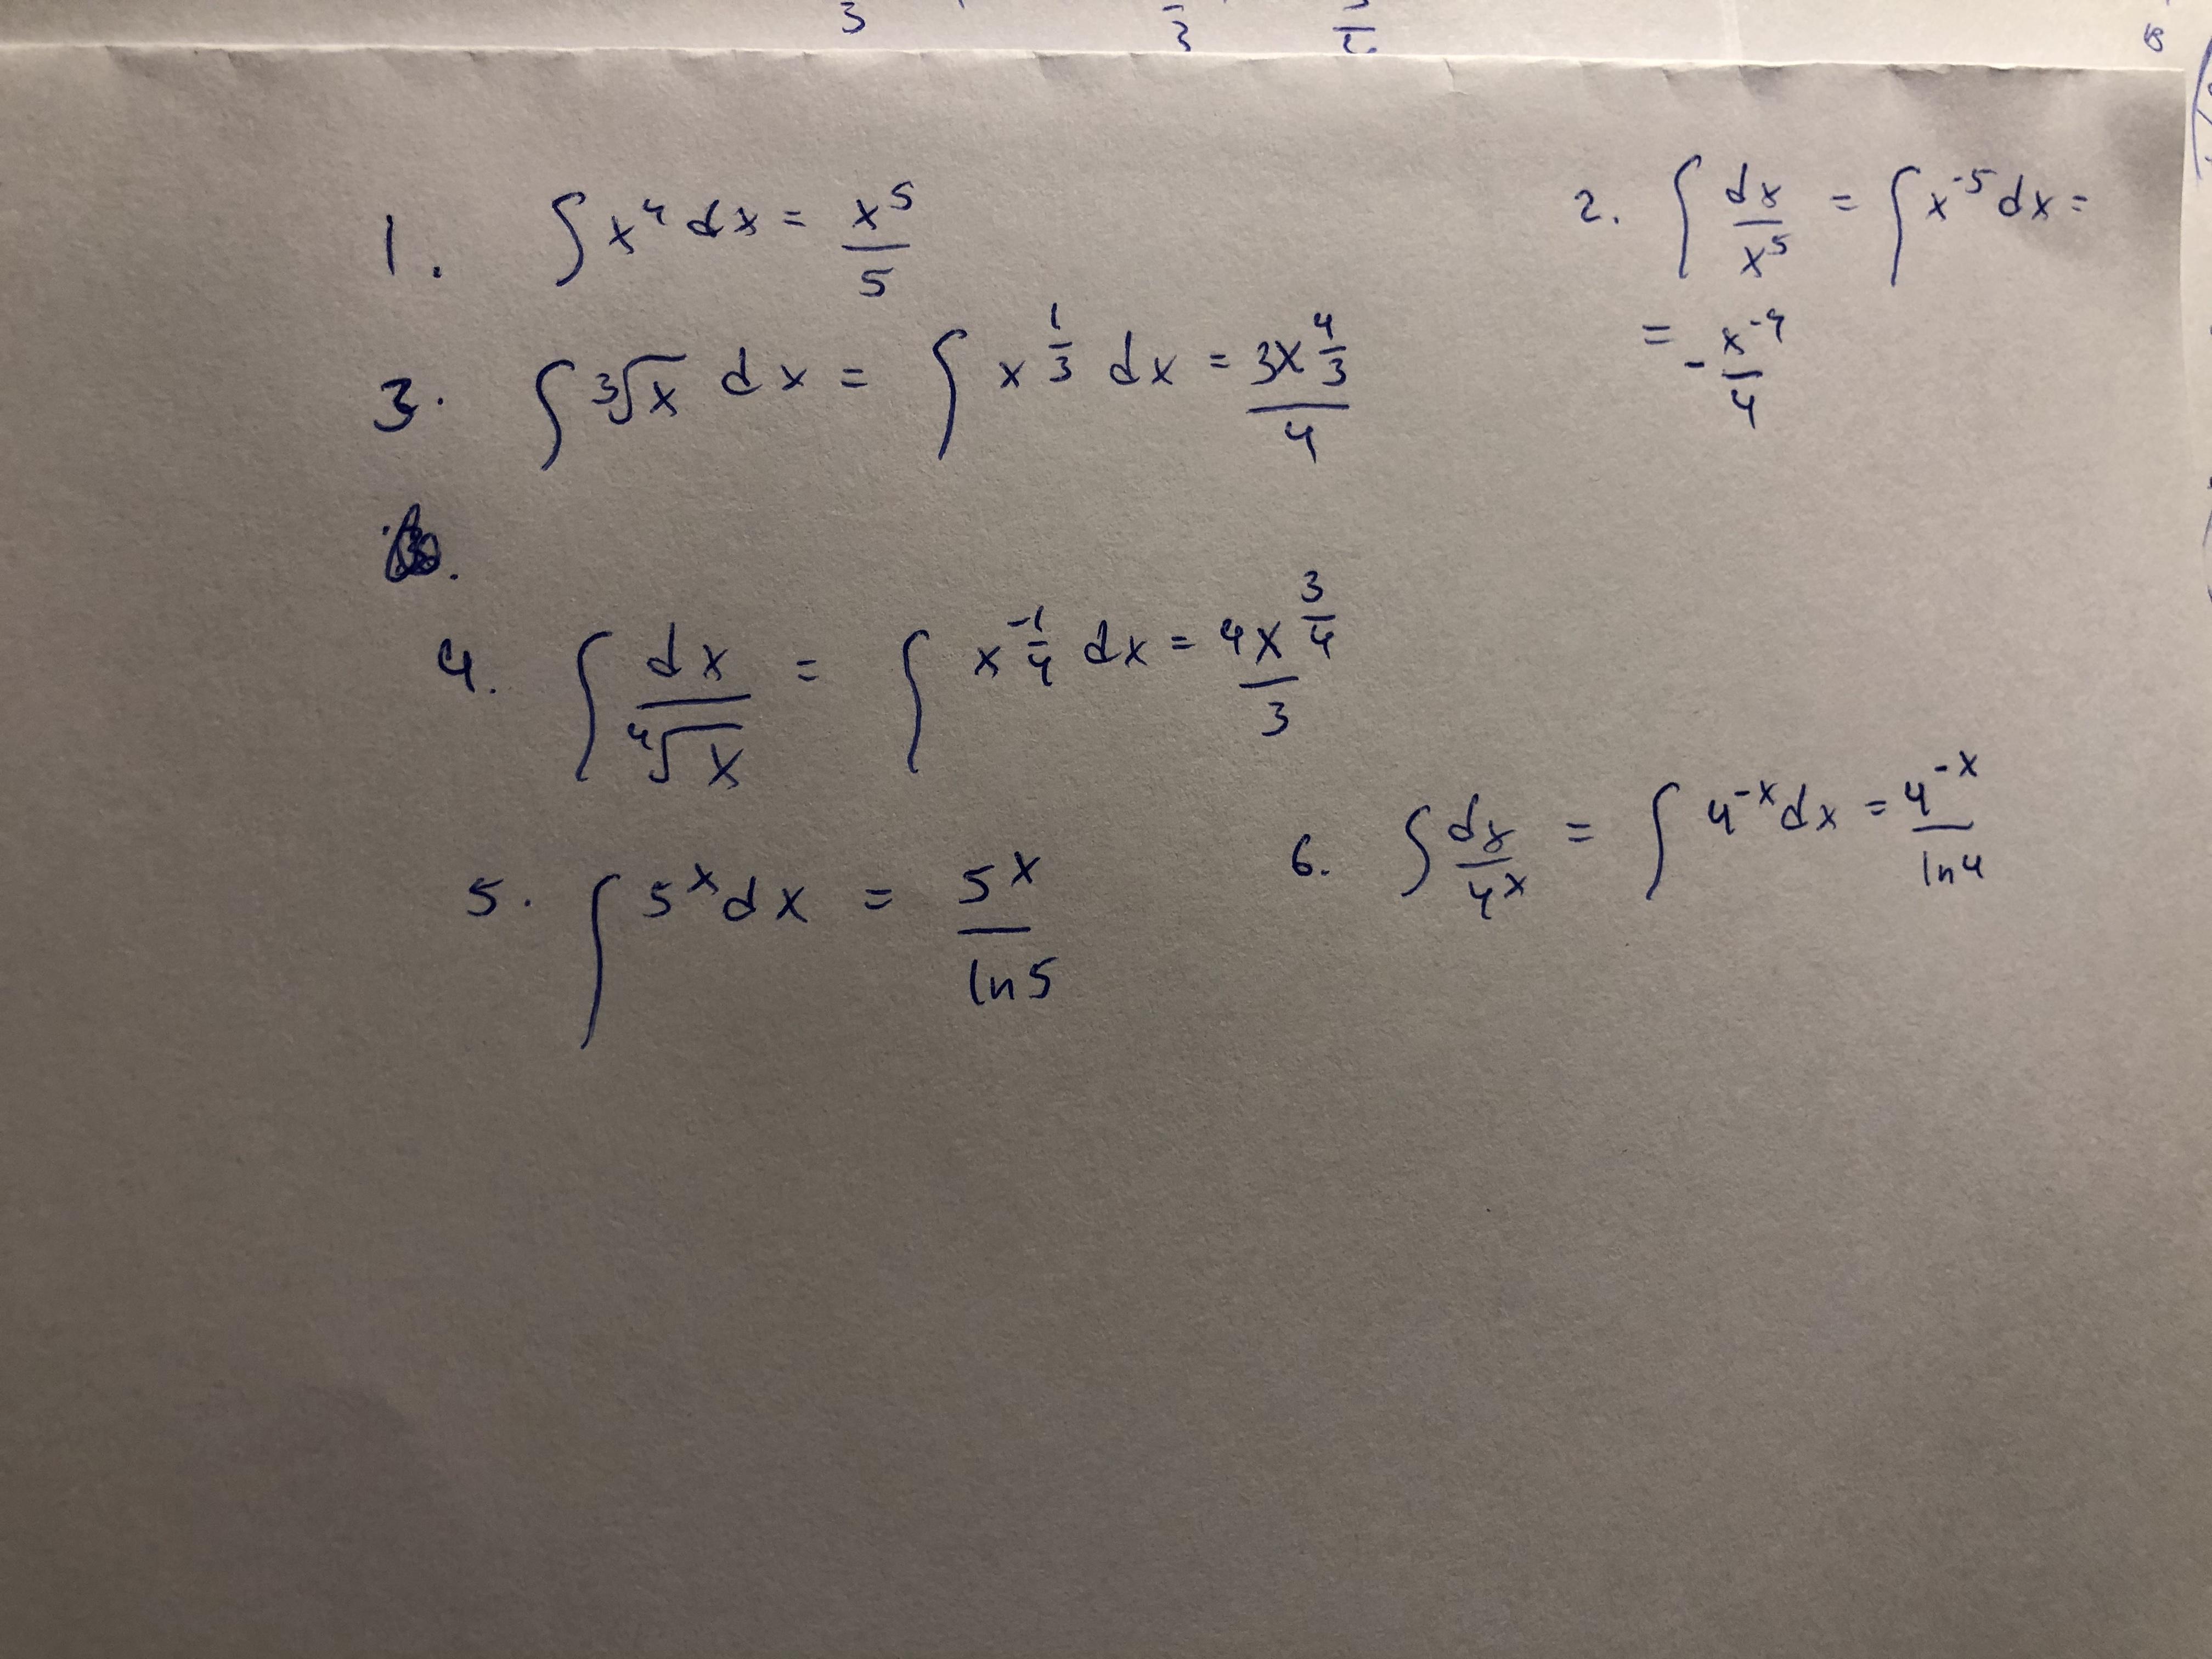 1. ∫ x⁴ dx = x⁵/5
2. ∫ dx/x⁵ = ∫ x⁻⁵ dx =
= - x⁻⁴/4
3. ∫ ³√x dx = ∫ x^(1/3) dx = 3x^(4/3)/4
4. ∫ dx/⁴√x = ∫ x^(-1/4) dx = 4x^(3/4)/3
5. ∫ 5ˣ dx = 5ˣ/ln5
6. ∫ dx/4ˣ = ∫ 4⁻ˣ dx = 4⁻ˣ/ln4